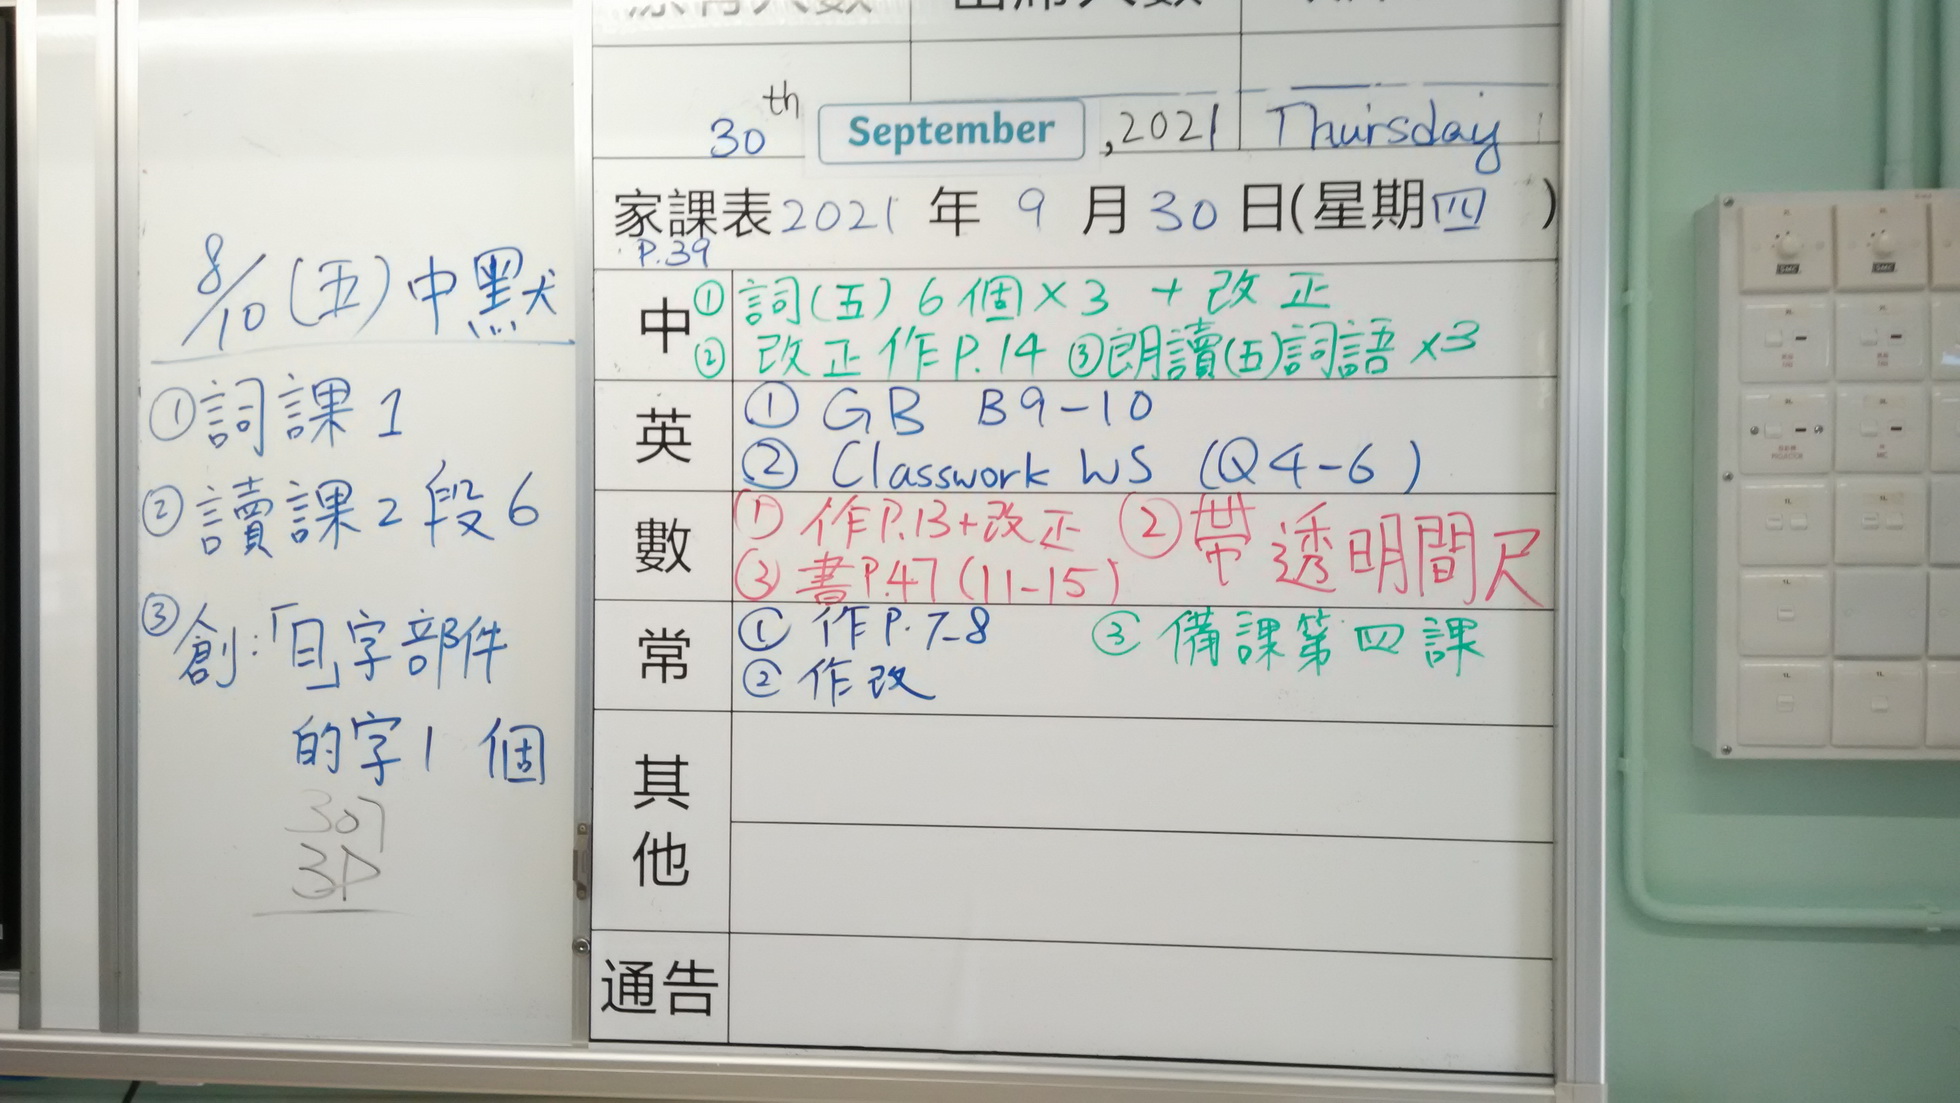 8/10 (五) 中默
①詞課1
②讀課2段6
③創:「目」字部件
的字1個
307
3P
30th September, 2021 Thursday
家課表2021年9月30日(星期四)
P.39
中 ①詞(五)6個×3 + 改正
②改正作P.14 ③朗讀(五)詞語×3
英 ① GB B9-10
② Classwork WS (Q4-6)
數 ①作P.13+改正 ②帶透明間尺
③書P.47(11-15)
常 ①作P.7-8 ③備課第四課
②作改
其他
通告